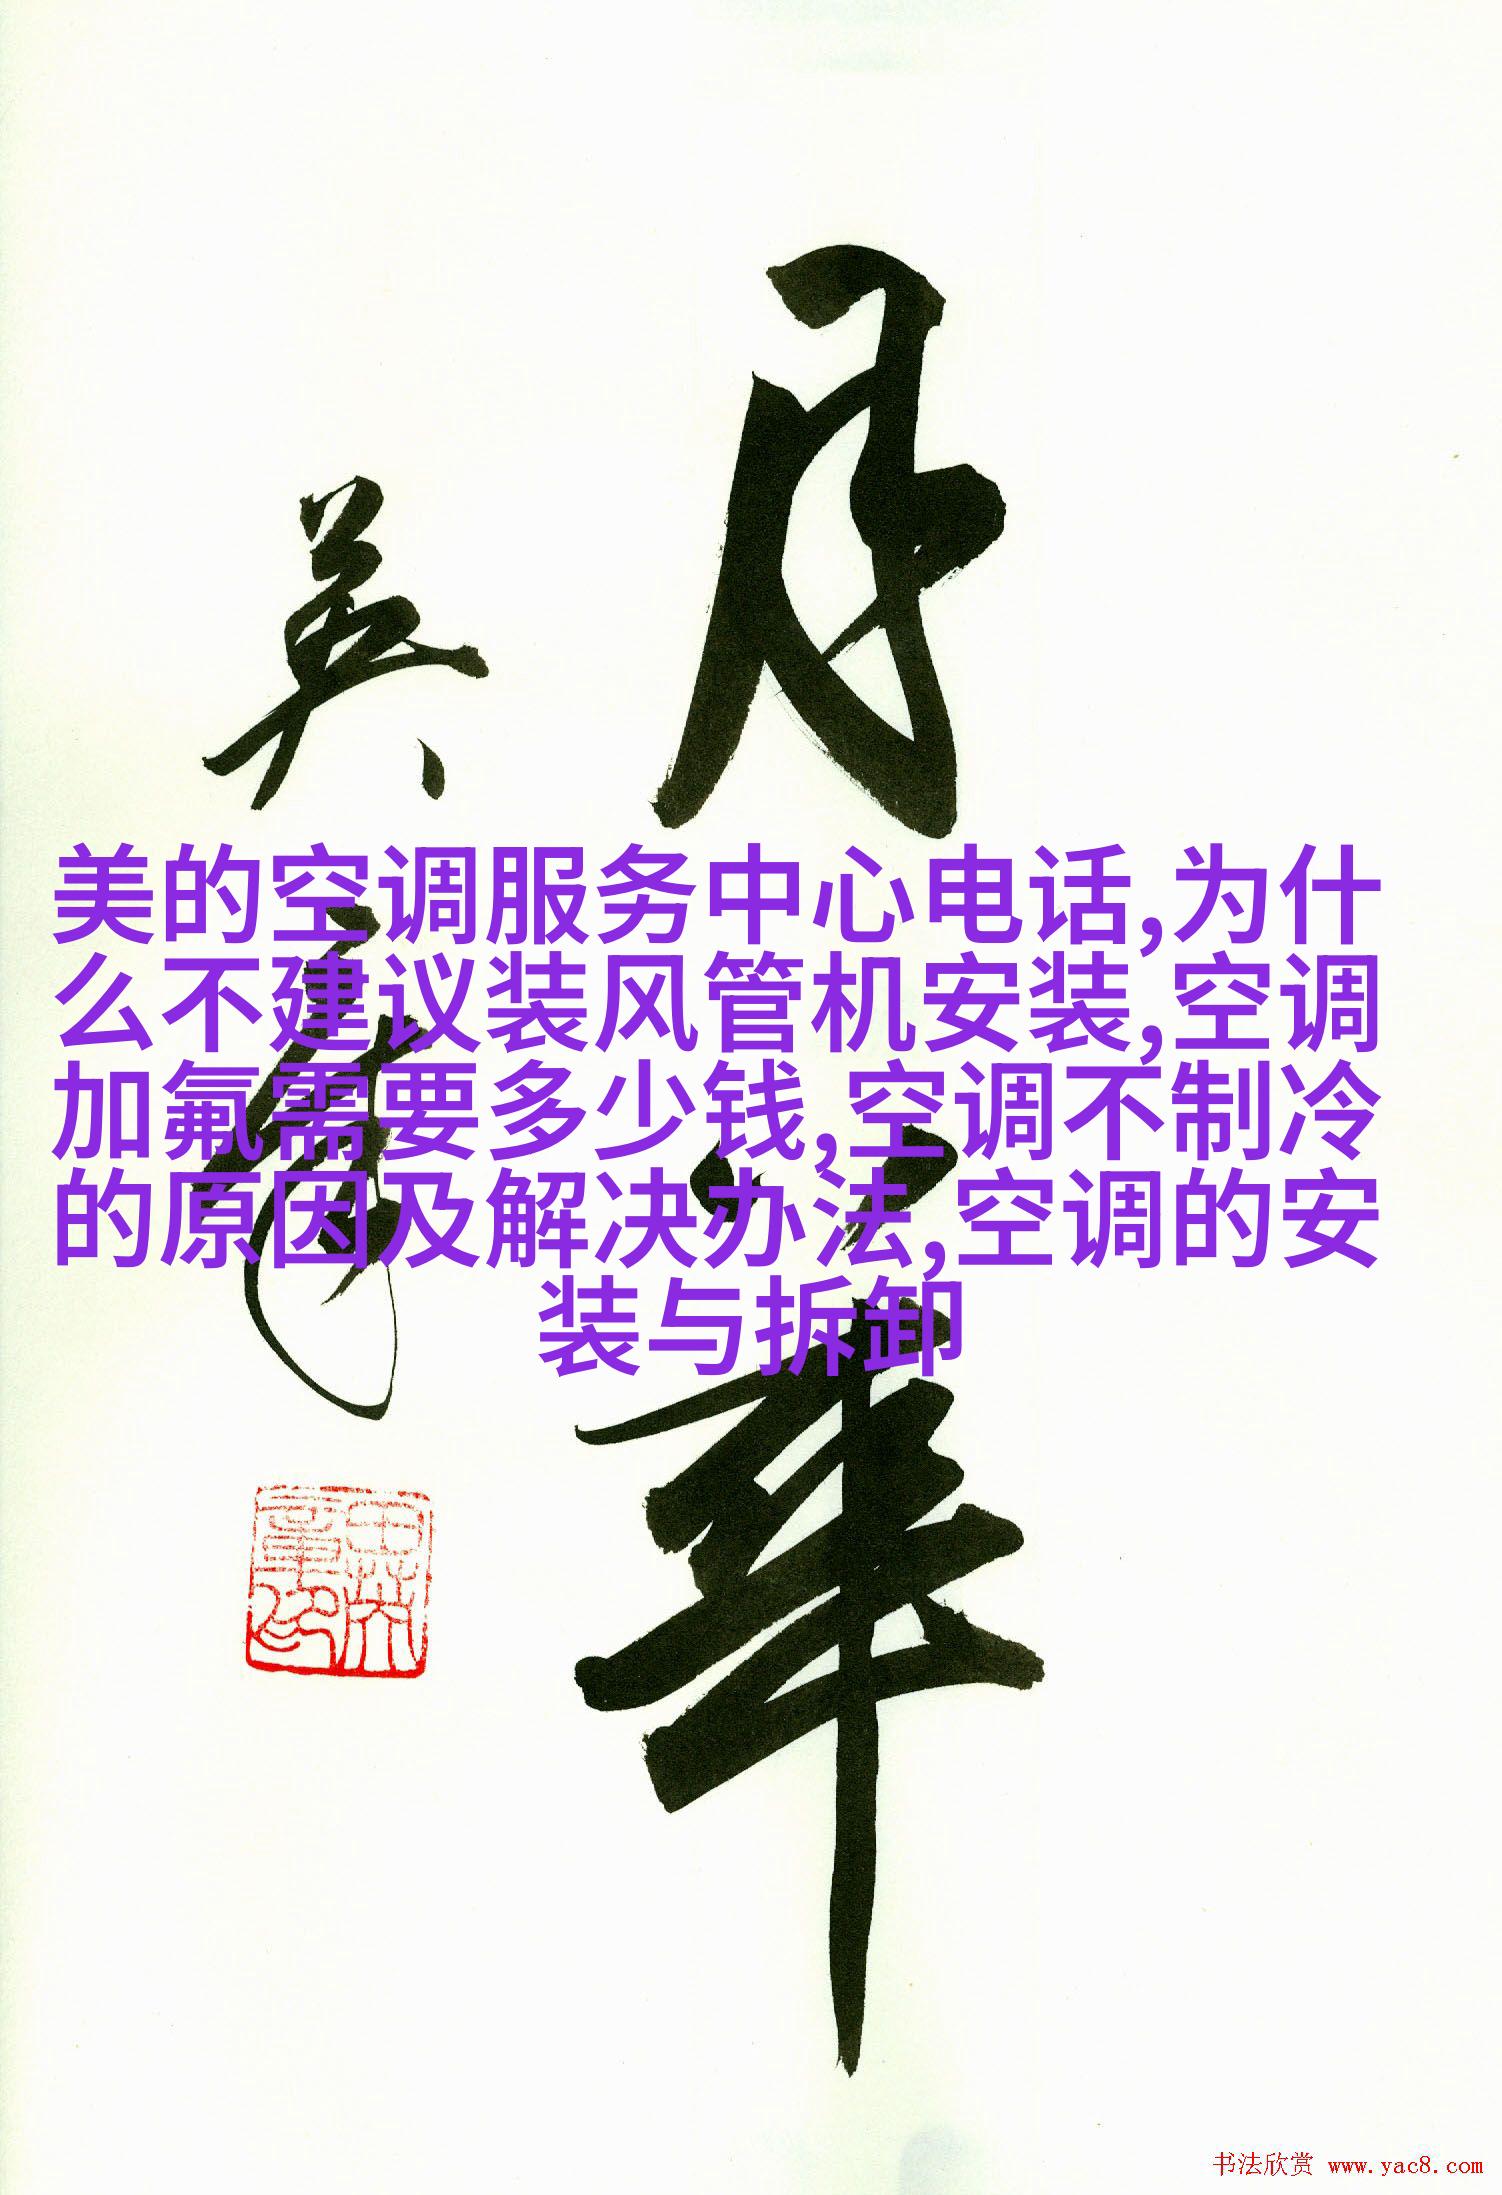 月华
英章
美的空调服务中心电话,为什
么不建议装风管机安装,空调
加氟需要多少钱,空调不制冷
的原因及解决办法,空调的安
装与拆卸
书法欣赏 www.yac8.com